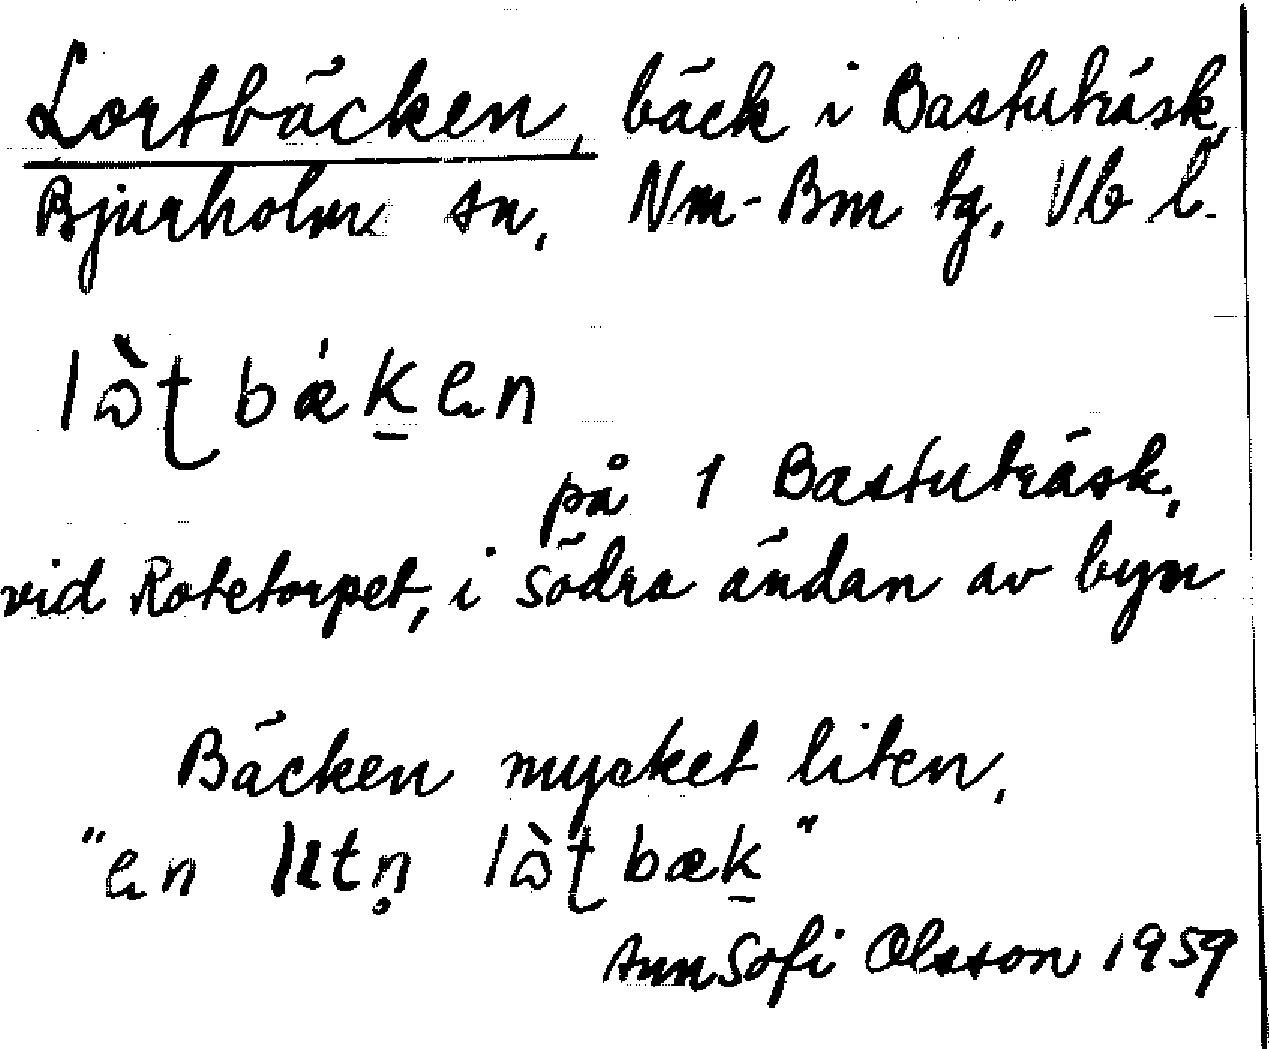 Lortbäcken, bäck i Bastuträsk,
Bjurholm sn, Nm-Bm tg, Vb l.
lɔ̀ʈbǽk̠en
på 1 Bastuträsk,
vid Rotetorpet, i södra ändan av byn
Bäcken mycket liten,
"en litn̥ lɔ̀ʈbæk̠"
Ann Sofi Olsson 1959